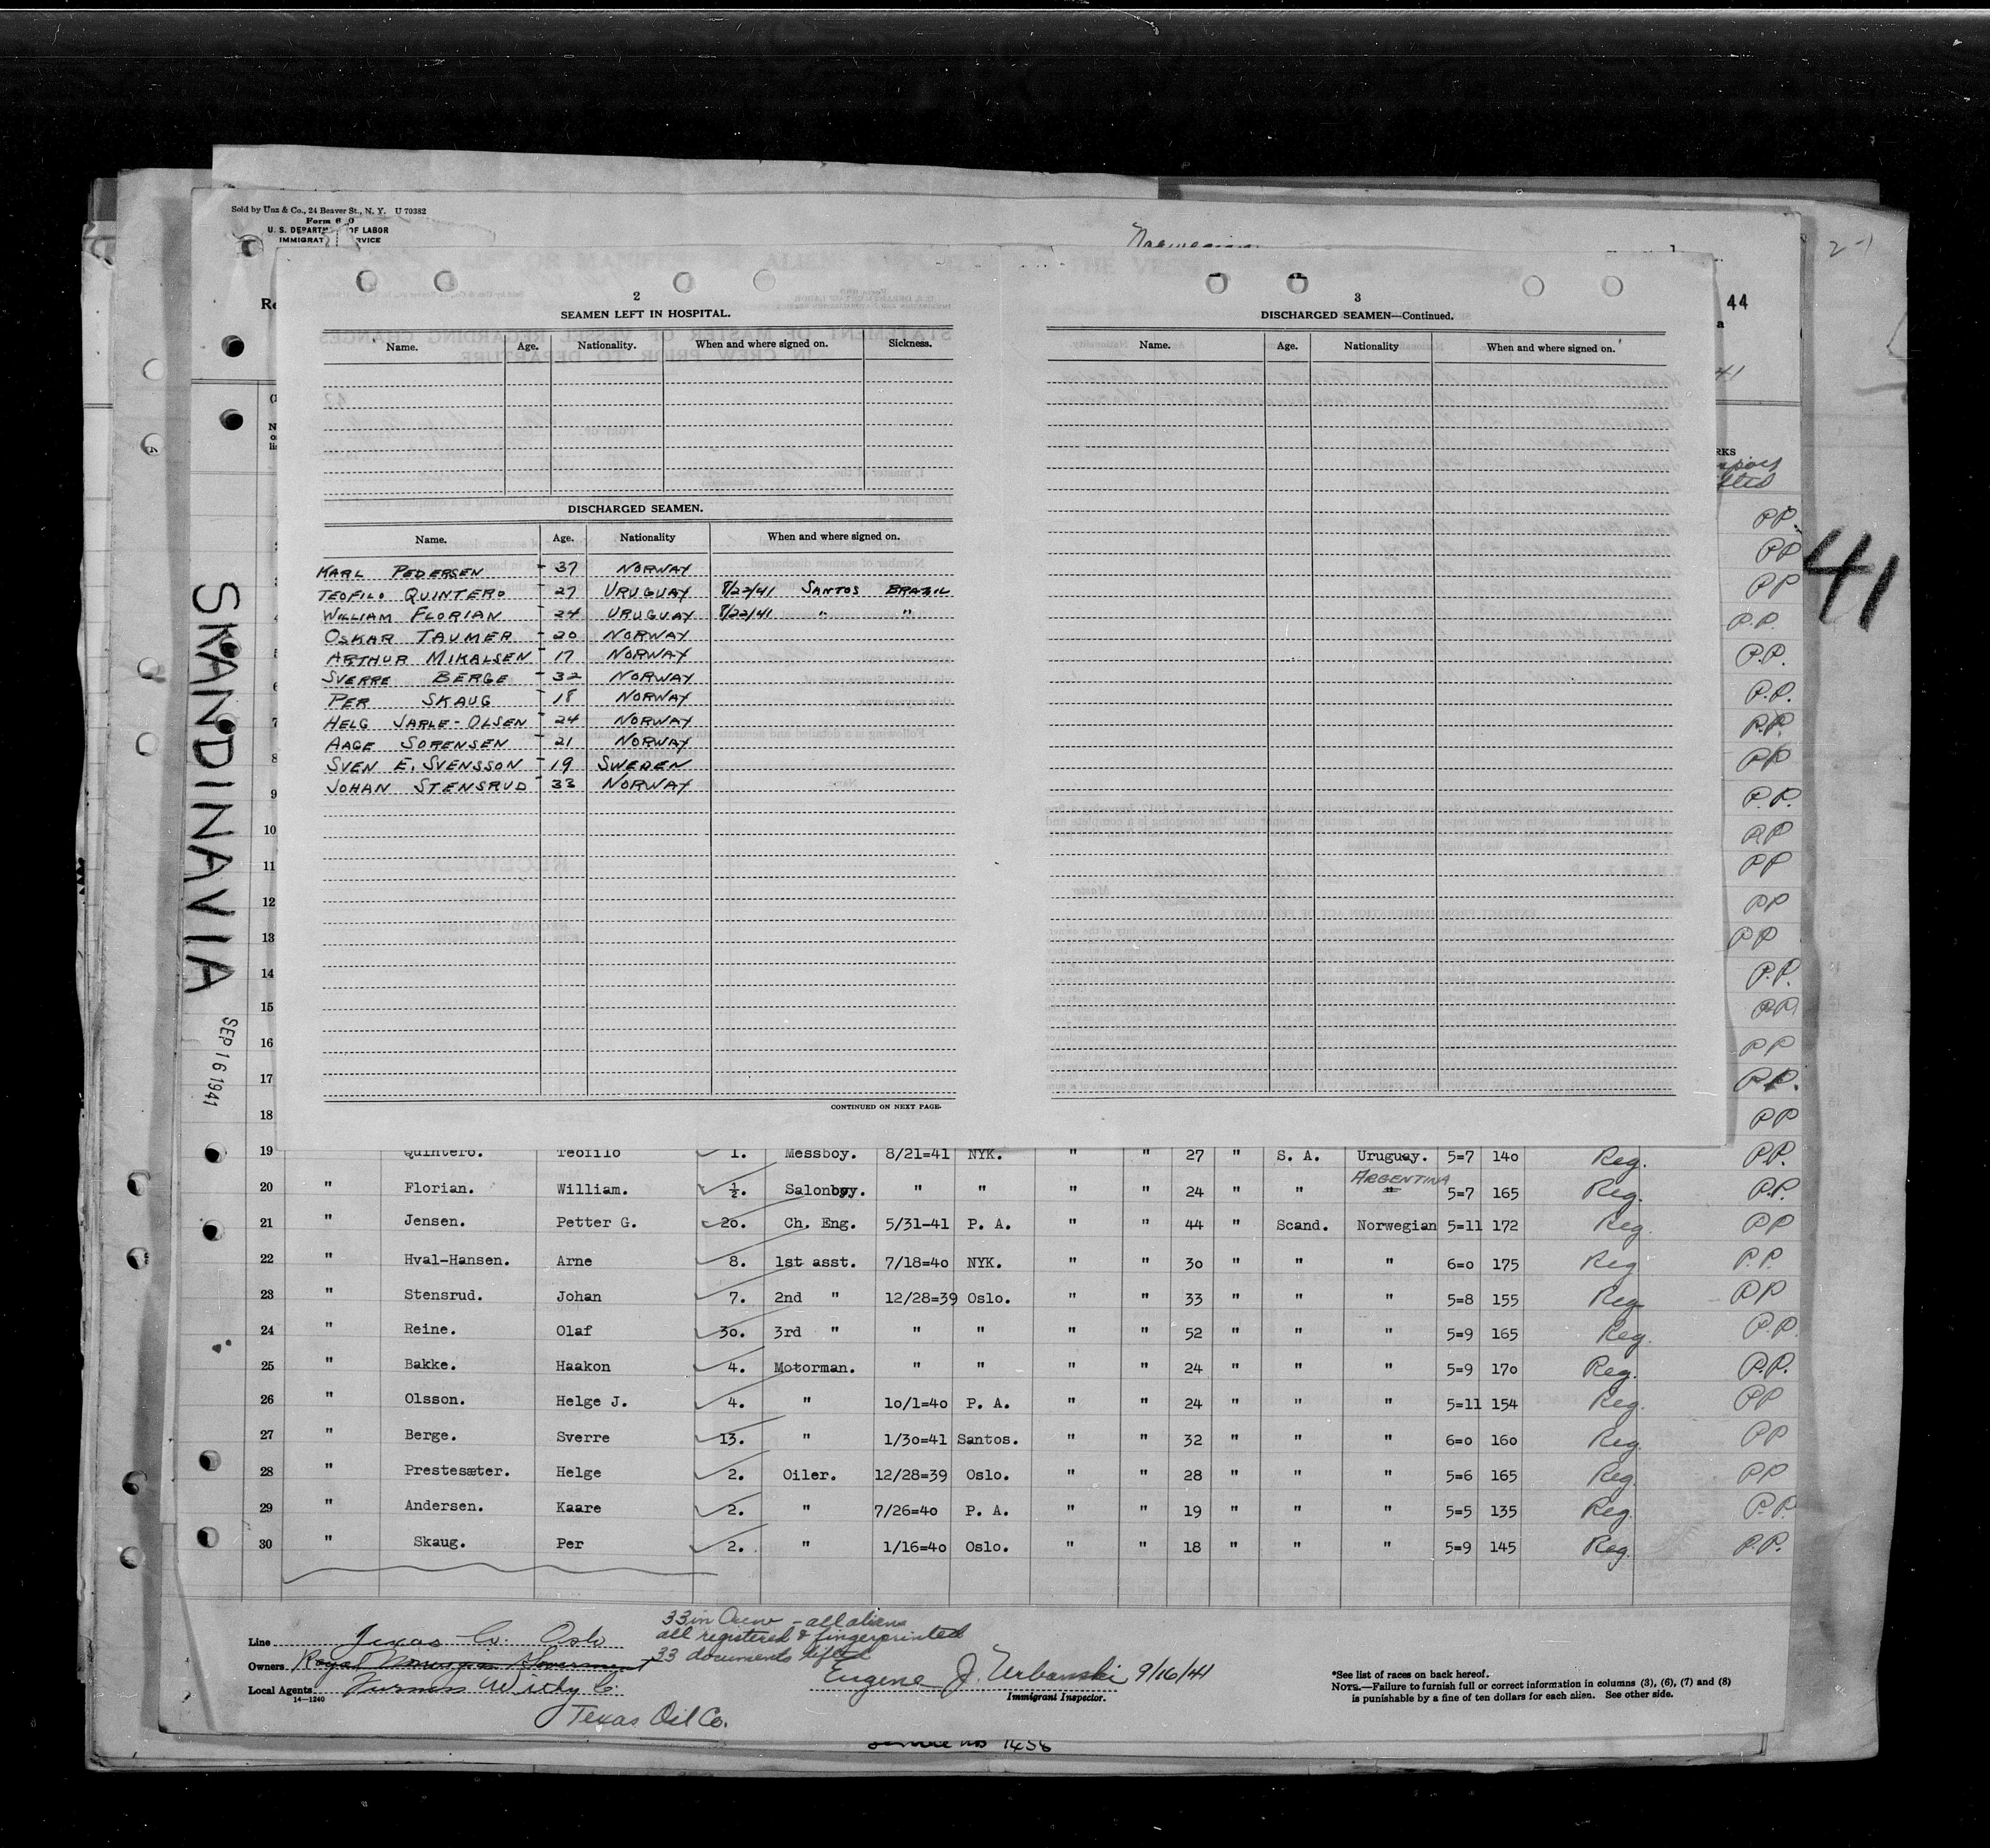 Sold by Unz & Co., 24 Beaver St., N. Y. U 70382
Form 6 0
U. S. DEPARTM OF LABOR
IMMIGRAT RVICE
Norwegian
2-1
44
41
RKS
2
SEAMEN LEFT IN HOSPITAL.
Name. Age. Nationality. When and where signed on. Sickness.
DISCHARGED SEAMEN.
Name. Age. Nationality When and where signed on.
KARL PEDERSEN - 37 NORWAY
TEOFILO QUINTERO - 27 URUGUAY 8/22/41 SANTOS BRAZIL
WILLIAM FLORIAN - 24 URUGUAY 8/22/41 " "
OSKAR TAUMER - 20 NORWAY
ARTHUR MIKALSEN - 17 NORWAY
SVERRE BERGE - 32 NORWAY
PER SKAUG - 18 NORWAY
HELG JARLE-OLSEN - 24 NORWAY
AAGE SORENSEN - 21 NORWAY
SVEN E. SVENSSON - 19 SWEDEN
JOHAN STENSRUD - 33 NORWAY
CONTINUED ON NEXT PAGE.
3
DISCHARGED SEAMEN—Continued.
Name. Age. Nationality When and where signed on.
SKANDINAVIA
SEP 16 1941
41
9
10
11
12
13
14
15
16
17
18
19 Quintero. Teofilo 1. Messboy. 8/21=41 NYK. " " 27 " S. A. Uruguay. 5=7 140 Reg. P.P.
ARGENTINA
20 " Florian. William. ½. Salonboy. " " " " 24 " " " 5=7 165 Reg. P.P.
21 " Jensen. Petter G. 20. Ch. Eng. 5/31-41 P. A. " " 44 " Scand. Norwegian 5=11 172 Reg PP
22 " Hval-Hansen. Arne 8. 1st asst. 7/18=40 NYK. " " 30 " " " 6=0 175 Reg P.P.
23 " Stensrud. Johan 7. 2nd " 12/28=39 Oslo. " " 33 " " " 5=8 155 Reg PP
24 " Reine. Olaf 30. 3rd " " " " " 52 " " " 5=9 165 Reg. P.P.
25 " Bakke. Haakon 4. Motorman. " " " " 24 " " " 5=9 170 Reg. P.P.
26 " Olsson. Helge J. 4. " 10/1=40 P. A. " " 24 " " " 5=11 154 Reg. PP
27 " Berge. Sverre 13. " 1/30=41 Santos. " " 32 " " " 6=0 160 Reg. PP
28 " Prestesæter. Helge 2. Oiler. 12/28=39 Oslo. " " 28 " " " 5=6 165 Reg. PP
29 " Andersen. Kaare 2. " 7/26=40 P. A. " " 19 " " " 5=5 135 Reg. P.P.
30 " Skaug. Per 2. " 1/16=40 Oslo. " " 18 " " " 5=9 145 Reg. P.P.
33 in Crew - all aliens
all registered & fingerprinted
33 documents lifted
Line Texas Co. Oslo
Owners Royal Norwegian Government
Local Agents Furness Withy Co.
14—1240
Texas Oil Co.
Eugene J. Urbanski 9/16/41
Immigrant Inspector.
*See list of races on back hereof.
NOTE.—Failure to furnish full or correct information in columns (3), (6), (7) and (8)
is punishable by a fine of ten dollars for each alien. See other side.